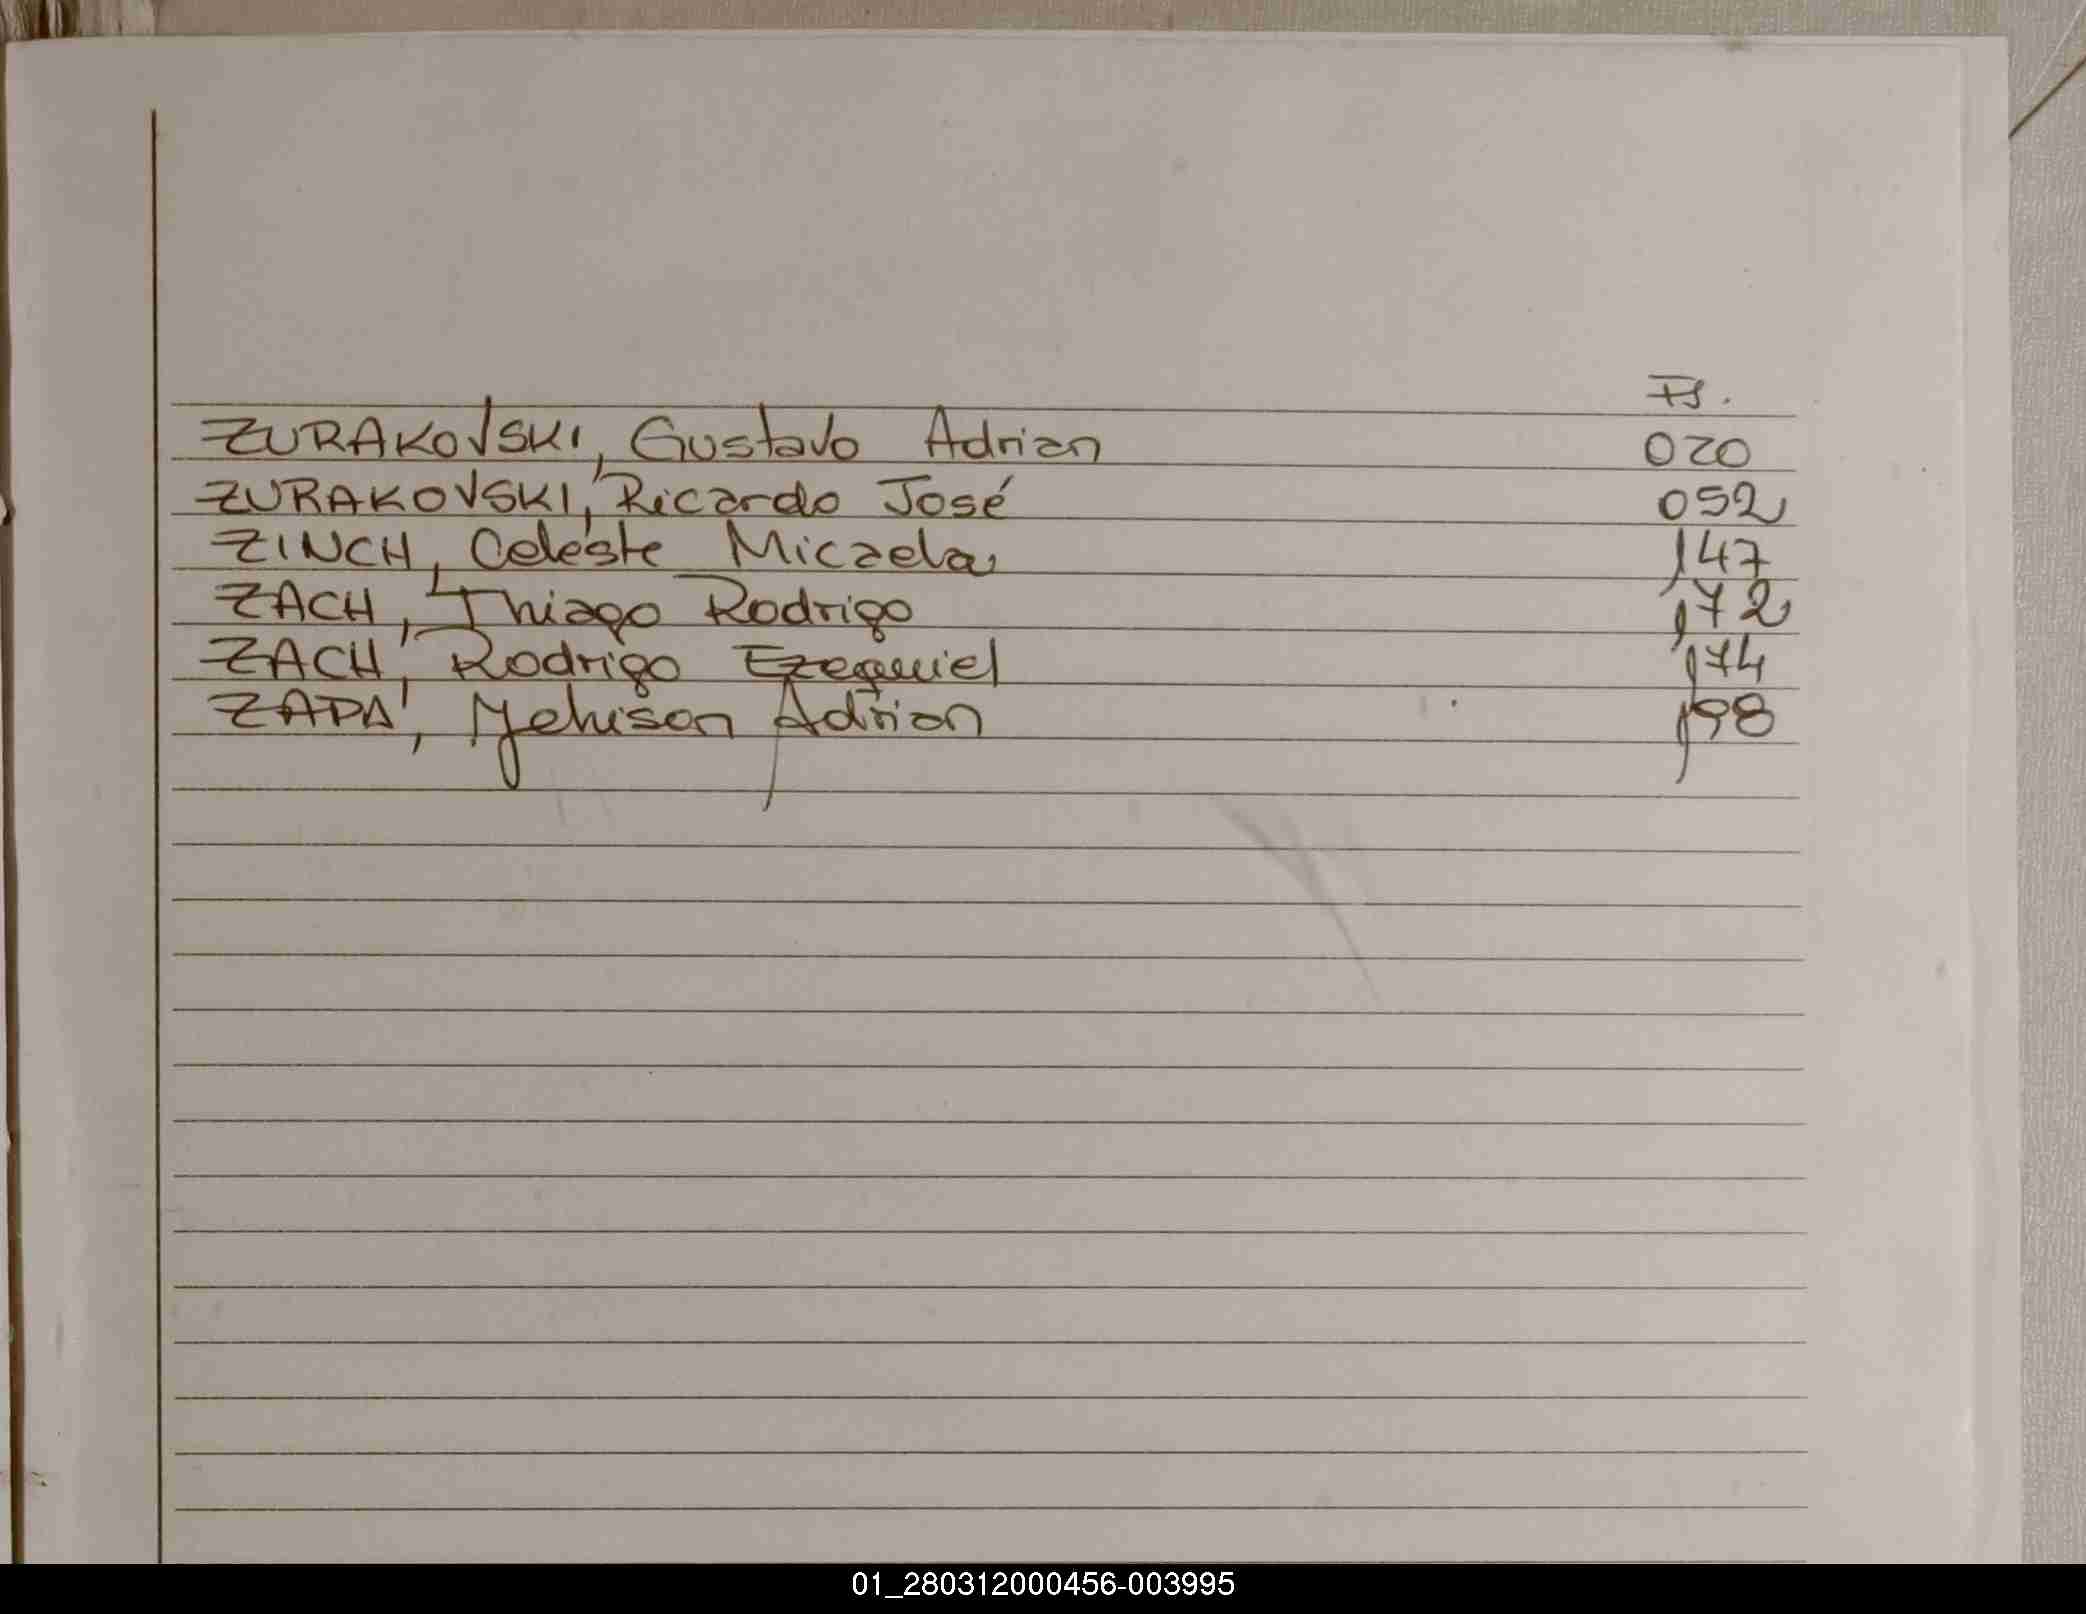 Fs.
ZURAKOVSKI, Gustavo Adrian 020
ZURAKOVSKI, Ricardo José 052
ZINCH, Celeste Micaela 147
ZACH, Thiago Rodrigo 172
ZACH, Rodrigo Ezequiel 174
ZAPA, Adrian 198
01_280312000456-003995